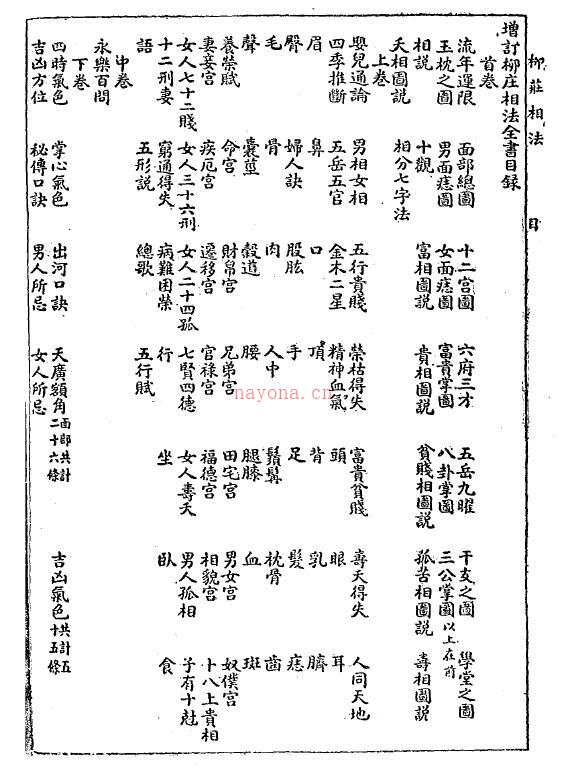 柳莊相法 目
增訂柳庄相法全書目録
首卷
流年運限 面部總圖 十二宫圖 六府三才 五岳九曜 干支之圖 學堂之圖
玉枕之圖 男面痣圖 女面痣圖 富貴掌圖 八卦掌圖 三公掌圖以上在前
相説 十觀 富相圖説 貴相圖説 貧賤相圖説 孤苦相圖説 壽相圖説
夭相圖説 相分七字法
上卷
嬰兒通論 男相女相 五行貴賤 榮枯得失 富貴貧賤 壽夭得失 人同天地
四季推斷 五岳五官 金木二星 精神血氣 頭 眼 耳
眉 鼻 口 頂 背 乳 臍
臀 婦人訣 股肱 手 足 髮 痣
毛 骨 肉 人中 鬚髯 枕骨 齒
聲 囊莖 穀道 腰 腿膝 血 斑
養榮賦 命宫 財帛宫 兄弟宫 田宅宫 男女宫 奴僕宫
妻妾宫 疾厄宫 遷移宫 官祿宫 福德宫 相貌宫 十八上貴相
女人七十二賤 女人三十六刑 女人二十四孤 七賢四德 女人壽夭 男人孤相 子有十尅
十二刑妻 窮通得失 病難困榮 行 坐 臥 食
語 五形説 總歌 五行賦
中卷
永樂百問
下卷
四時氣色 掌心氣色 出河口訣 天廣額角面部共計二十六條 吉凶氣色共計五十五條
吉凶方位 秘傳口訣 男人所忌 女人所忌
nayona.cn